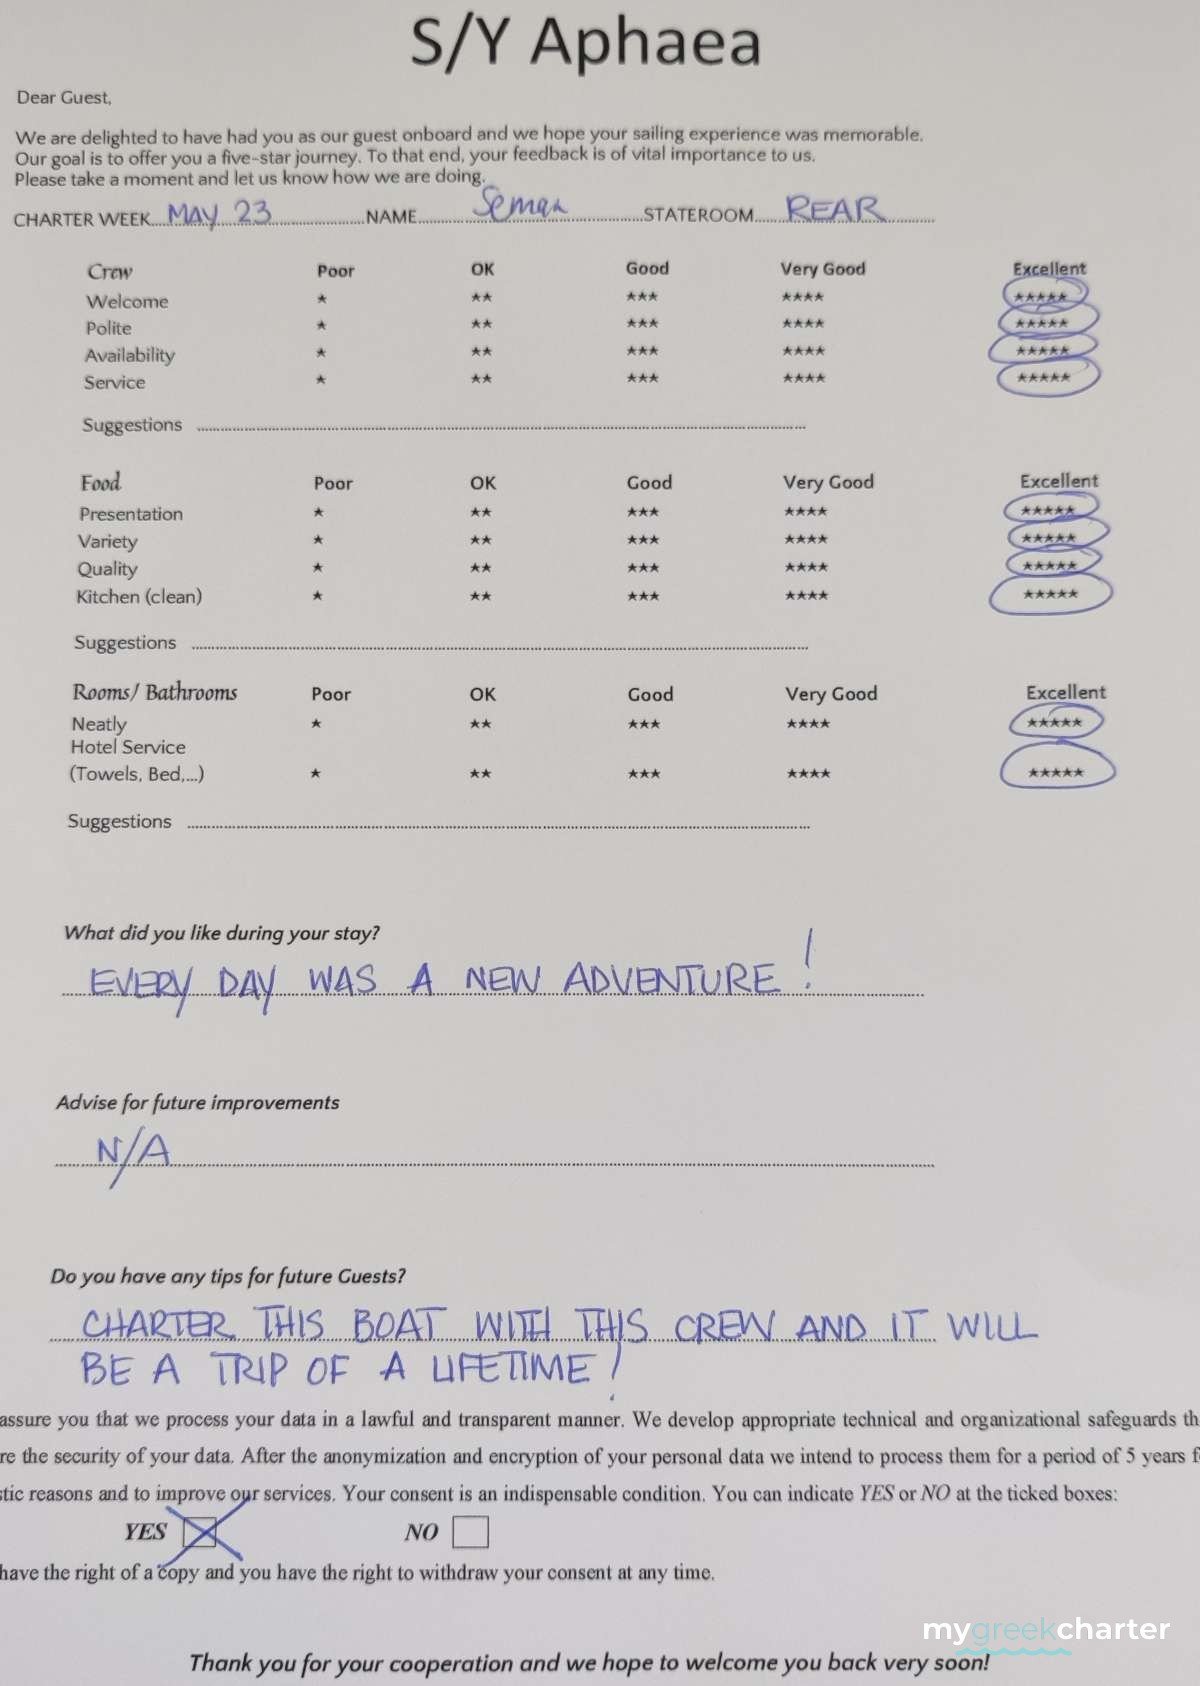 S/Y Aphaea
Dear Guest,
We are delighted to have had you as our guest onboard and we hope your sailing experience was memorable.
Our goal is to offer you a five-star journey. To that end, your feedback is of vital importance to us.
Please take a moment and let us know how we are doing.
CHARTER WEEK MAY 23 NAME Seman STATEROOM REAR
Crew Poor OK Good Very Good Excellent
Welcome ★ ★★ ★★★ ★★★★ ★★★★★
Polite ★ ★★ ★★★ ★★★★ ★★★★★
Availability ★ ★★ ★★★ ★★★★ ★★★★★
Service ★ ★★ ★★★ ★★★★ ★★★★★
Suggestions
Food Poor OK Good Very Good Excellent
Presentation ★ ★★ ★★★ ★★★★ ★★★★★
Variety ★ ★★ ★★★ ★★★★ ★★★★★
Quality ★ ★★ ★★★ ★★★★ ★★★★★
Kitchen (clean) ★ ★★ ★★★ ★★★★ ★★★★★
Suggestions
Rooms/ Bathrooms Poor OK Good Very Good Excellent
Neatly ★ ★★ ★★★ ★★★★ ★★★★★
Hotel Service
(Towels, Bed,...) ★ ★★ ★★★ ★★★★ ★★★★★
Suggestions
What did you like during your stay?
EVERY DAY WAS A NEW ADVENTURE!
Advise for future improvements
N/A
Do you have any tips for future Guests?
CHARTER THIS BOAT WITH THIS CREW AND IT WILL
BE A TRIP OF A LIFETIME!
assure you that we process your data in a lawful and transparent manner. We develop appropriate technical and organizational safeguards th
re the security of your data. After the anonymization and encryption of your personal data we intend to process them for a period of 5 years f
stic reasons and to improve our services. Your consent is an indispensable condition. You can indicate YES or NO at the ticked boxes:
YES NO
have the right of a copy and you have the right to withdraw your consent at any time.
mygreekcharter
Thank you for your cooperation and we hope to welcome you back very soon!